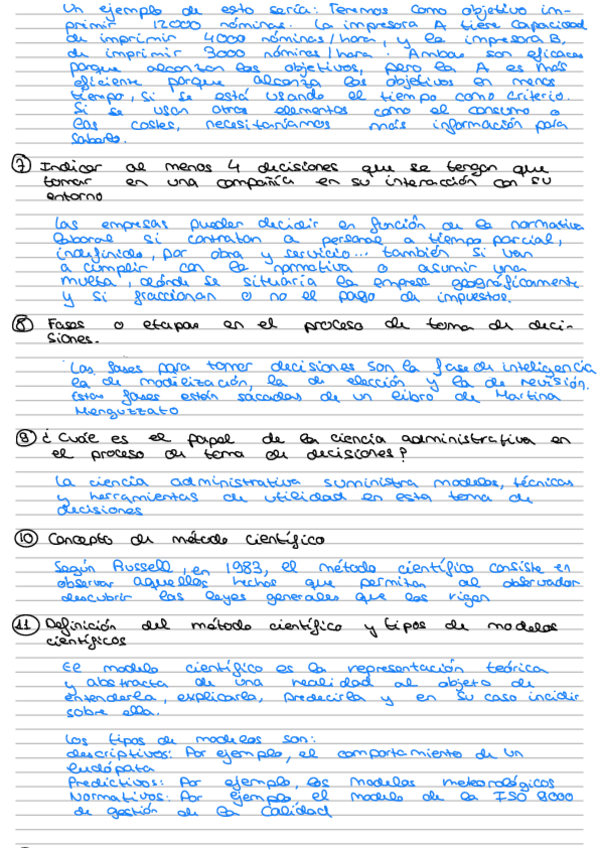 Un ejemplo de esto sería: Tenemos como objetivo im-
primir 12000 nóminas. La impresora A tiene capacidad
de imprimir 4000 nóminas/hora, y la impresora B,
de imprimir 3000 nóminas/hora. Ambas son eficaces
porque alcanzan los objetivos, pero la A es más
eficiente porque alcanza los objetivos en menos
tiempo, si se está usando el tiempo como criterio.
Si se usan otros elementos como el consumo o
los costes, necesitaríamos más información para
saberlo.
7 Indicar al menos 4 decisiones que se tengan que
tomar en una compañía en su interacción con su
entorno
Las empresas pueden decidir en función de la normativa
laboral si contratan a personal a tiempo parcial,
indefinido, por obra y servicio... también si van
a cumplir con la normativa o asumir una
multa, dónde se situaría la empresa geográficamente
y si fraccionan o no el pago de impuestos.
8 Fases o etapas en el proceso de toma de deci-
siones.
Las fases para tomar decisiones son la fase de inteligencia
la de modelización, la de elección y la de revisión.
Estas fases están sacadas de un libro de Martina
Menguzzato
9 ¿Cuál es el papel de la ciencia administrativa en
el proceso de toma de decisiones?
La ciencia administrativa suministra modelos, técnicas
y herramientas de utilidad en esta toma de
decisiones
10 Concepto de método científico
Según Russell, en 1983, el método científico consiste en
observar aquellos hechos que permitan al observador
descubrir las leyes generales que los rigen
11 Definición del método científico y tipos de modelos
científicos
El modelo científico es la representación teórica
y abstracta de una realidad al objeto de
entenderla, explicarla, predecirla y en su caso incidir
sobre ella.
Los tipos de modelos son:
descriptivos: Por ejemplo, el comportamiento de un
ludópata
Predictivos: Por ejemplo, los modelos meteorológicos
Normativos: Por ejemplo el modelo de la ISO 9000
de gestión de la calidad